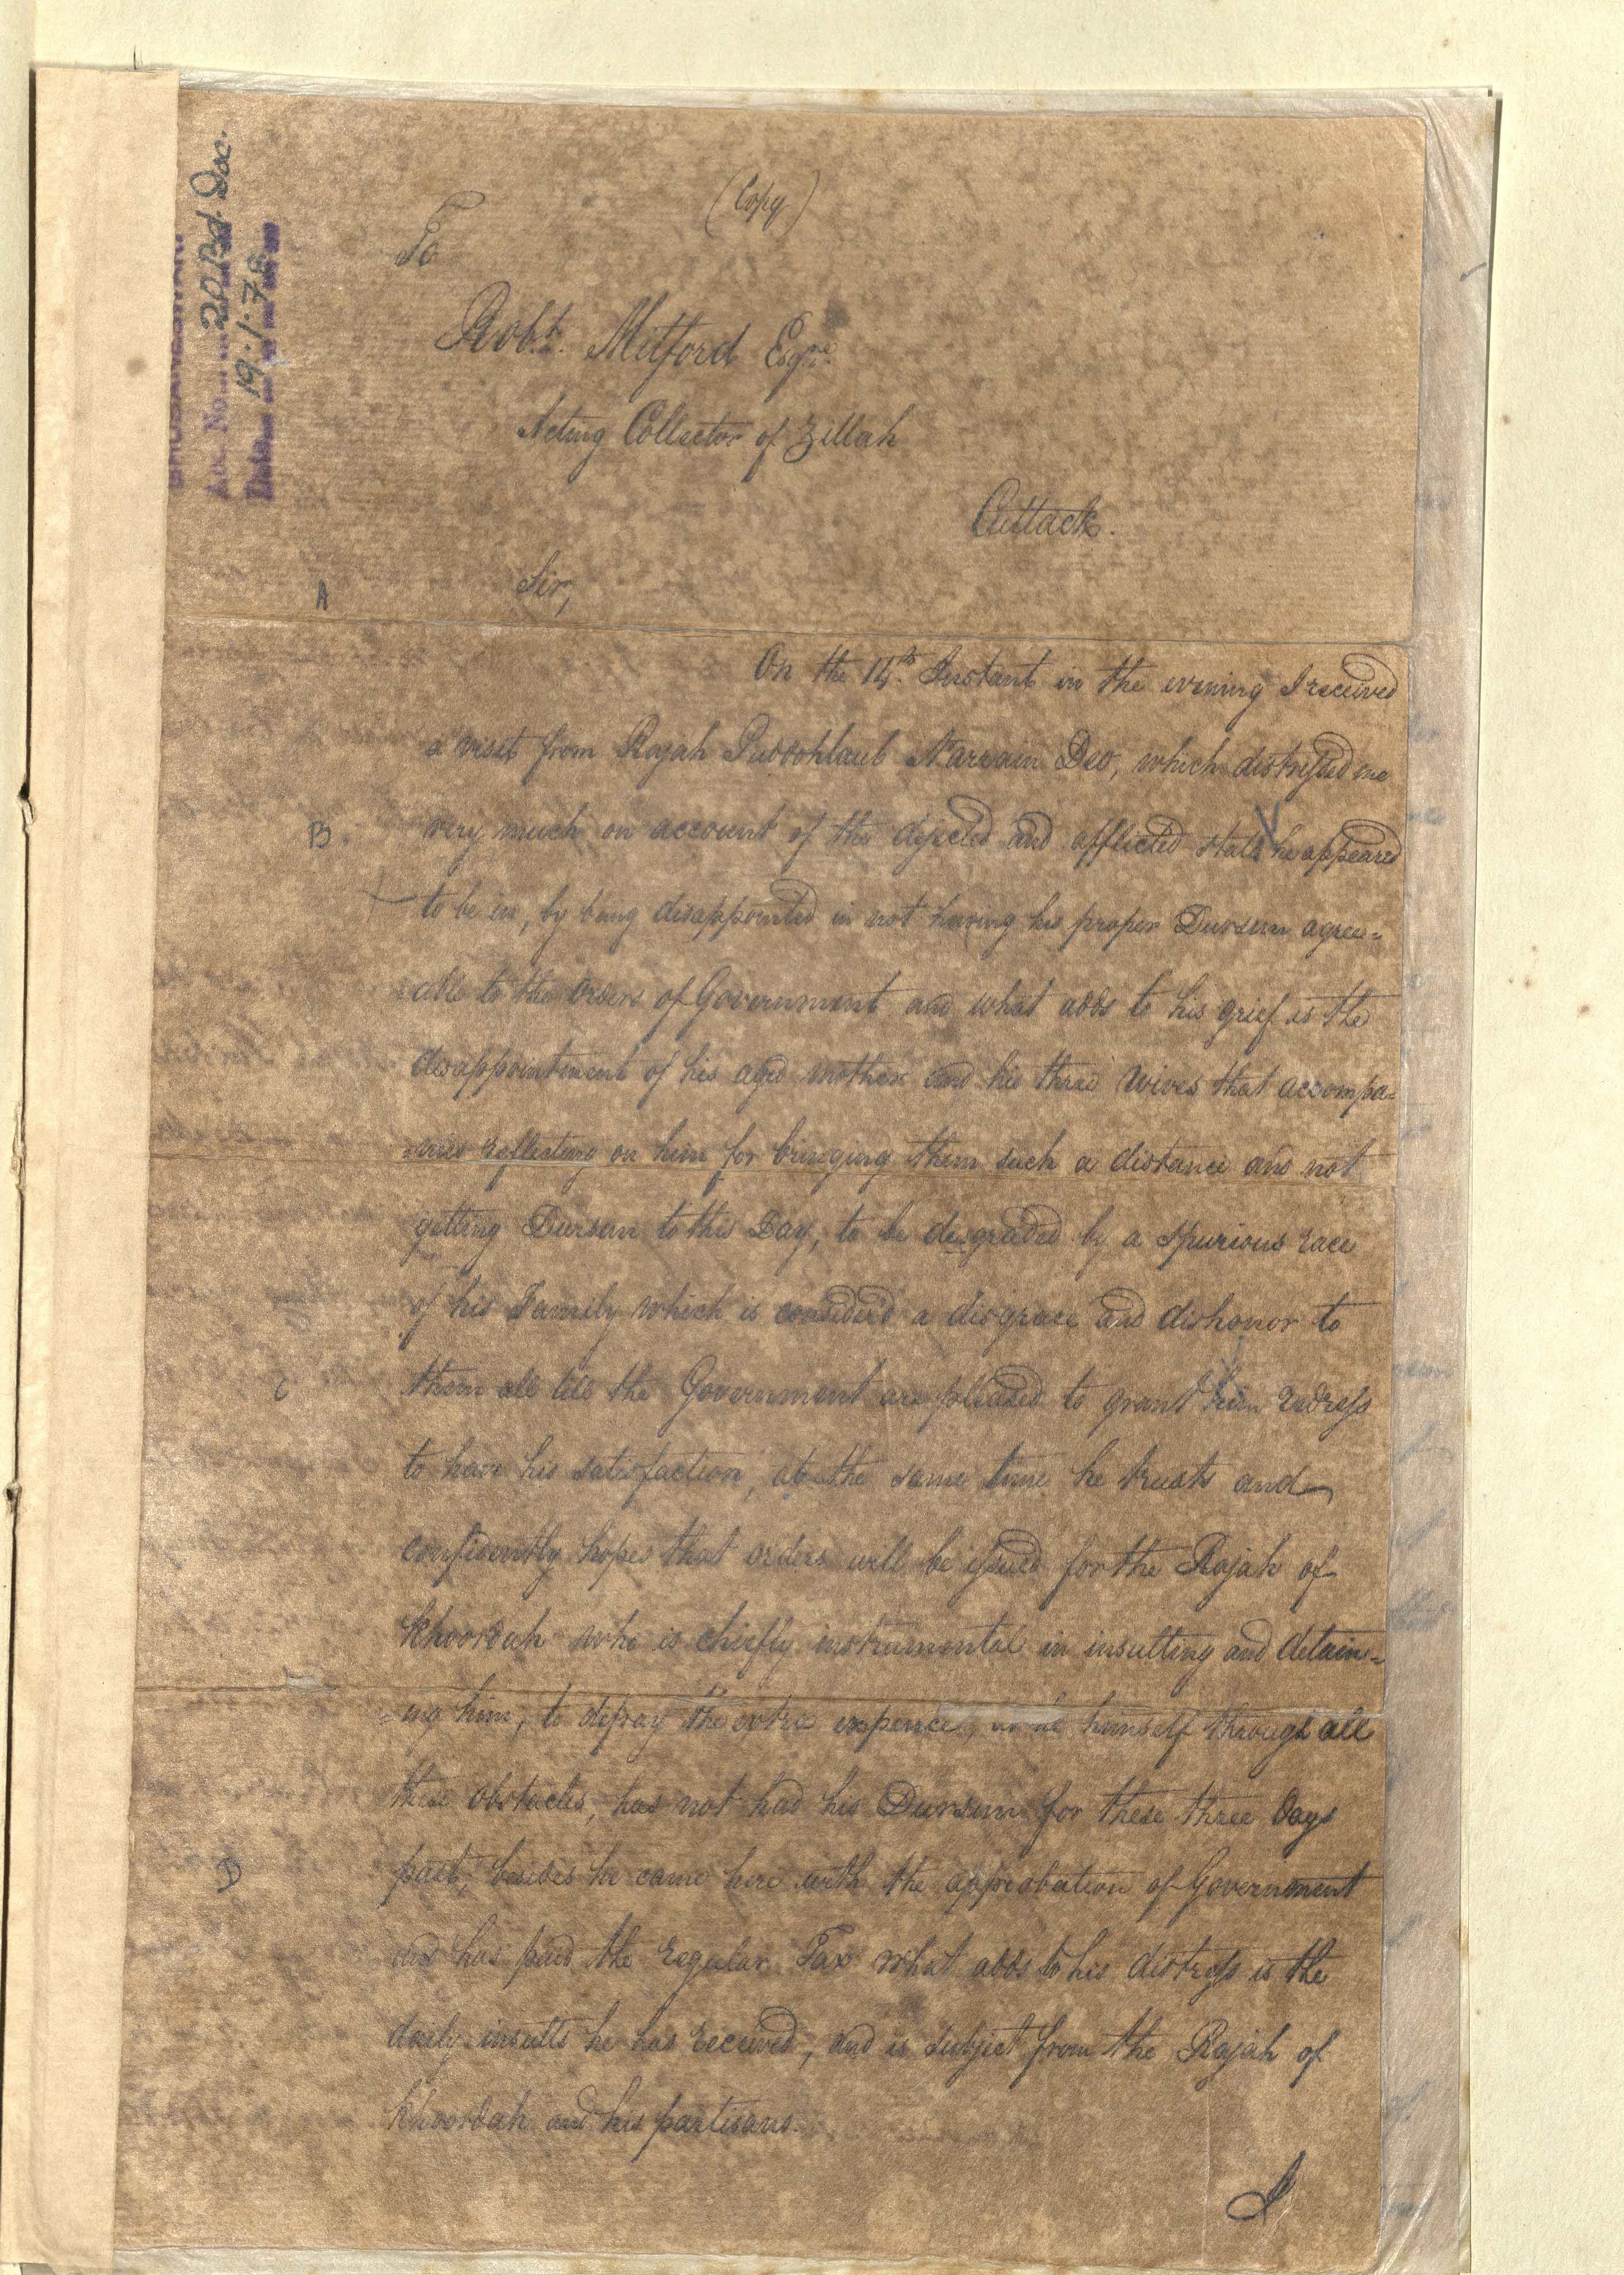 BHUBANESWAR
Ac. No. 20 Bd. Doc.
Date 19.1.78
(Copy)
To
Robt. Mitford Esqre.
Acting Collector of Zillah
Cuttack.
A
Sir,
On the 14th. Instant in the evening I received
a visit from Rajah Narrain Deo, which distressed me
B. very much on account of the dejected and afflicted state he appeared
to be in, by being disappointed in not having his proper Dursun agree=
=able to the orders of Government and what adds to his grief is the
disappointment of his aged mother and his three Wives that accompa=
=nies reflecting on him for bringing them such a distance and not
getting Dursun to this Day, to be desgraded by a spurious race
of his Family which is considerd a disgrace and dishonor to
C them all till the Government are pleased to grant him redress
to have his satisfaction, at the same time he trusts and
confidently hopes that orders will be issued for the Rajah of
Khoordah who is cheifly instrumental in insulting and detain=
=ing him, to defray the extra expence, as he himself through all
these obstacles, has not had his Dursun for these three Days
D past, besides he came here with the approbation of Government
and has paid the regular Tax what adds to his distress is the
daily insults he has received, and is subject from the Rajah of
Khoordah and his partisans.
I